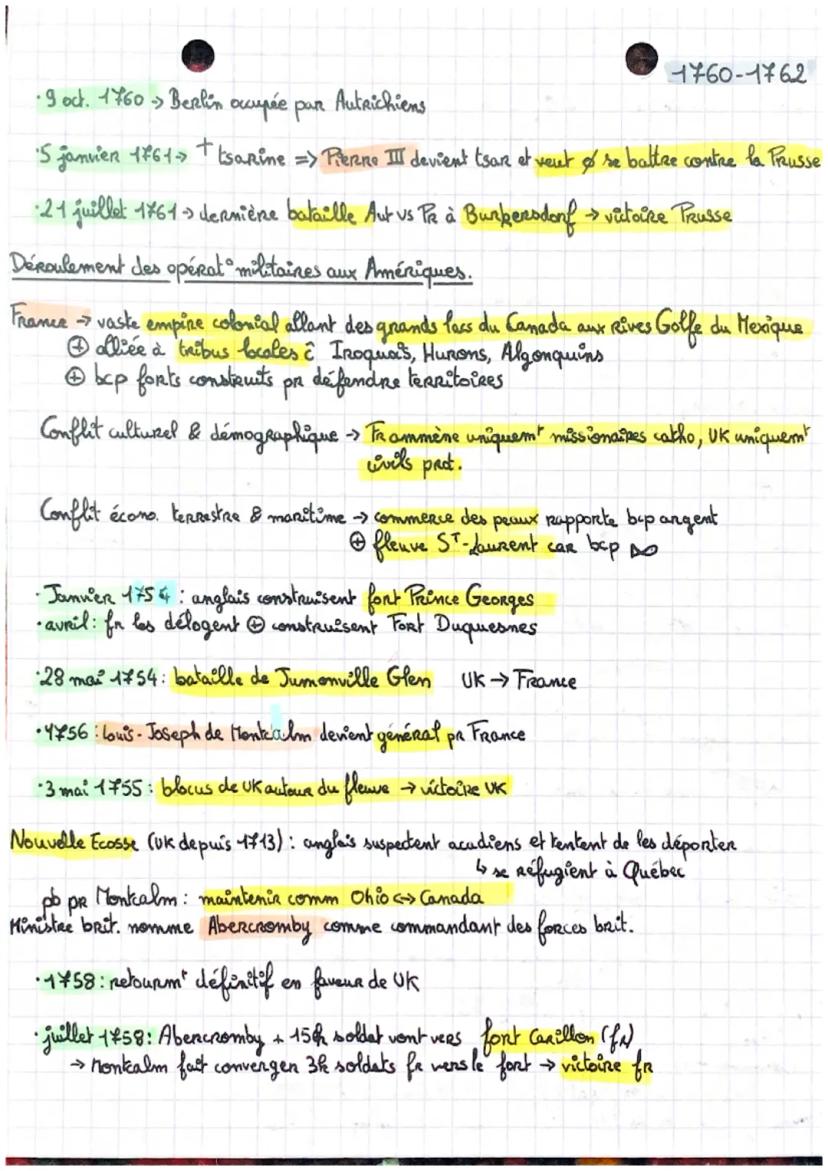 1760-1762
· 9 oct. 1760 → Berlin occupée par Autrichiens
· 5 janvier 1761 → † tsarine => Pierre III devient tsar et veut ø se battre contre la Prusse
· 21 juillet 1761 → dernière bataille Aut vs Pr à Burkersdorf → victoire Prusse
Déroulement des opérat° militaires aux Amériques.
France → vaste empire colonial allant des grands lacs du Canada aux Rives Golfe du Mexique
⊕ alliée à tribus locales ĉ Iroquois, Hurons, Algonquins
⊕ bcp forts construits pr défendre territoires
Conflit culturel & démographique → Fr ammène uniquemt missionaires catho, UK uniquemt
civils prot.
Conflit écono. terrestre & maritime → commerce des peaux rapporte bcp argent
⊕ fleuve ST-Laurent car bcp
· Janvier 1754 : anglais construisent fort Prince Georges
· avril : fr les délogent ⊕ construisent Fort Duquesnes
· 28 mai 1754 : bataille de Jumonville Glen UK → France
· 1756 : Louis-Joseph de Montcalm devient général pr France
· 3 mai 1755 : blocus de UK autour du fleuve → victoire UK
Nouvelle Ecosse (UK depuis 1713) : anglais suspectent acadiens et tentent de les déporter
↳ se réfugient à Québec
pb pr Montcalm : maintenir comm Ohio <-> Canada
Ministre brit. nomme Abercromby comme commandant des forces brit.
· 1758 : retournmt définitif en faveur de UK
· juillet 1758 : Abercromby + 15k soldat vont vers fort Carillon (fr)
→ montcalm fait converger 3k soldats fr vers le fort → victoire fr